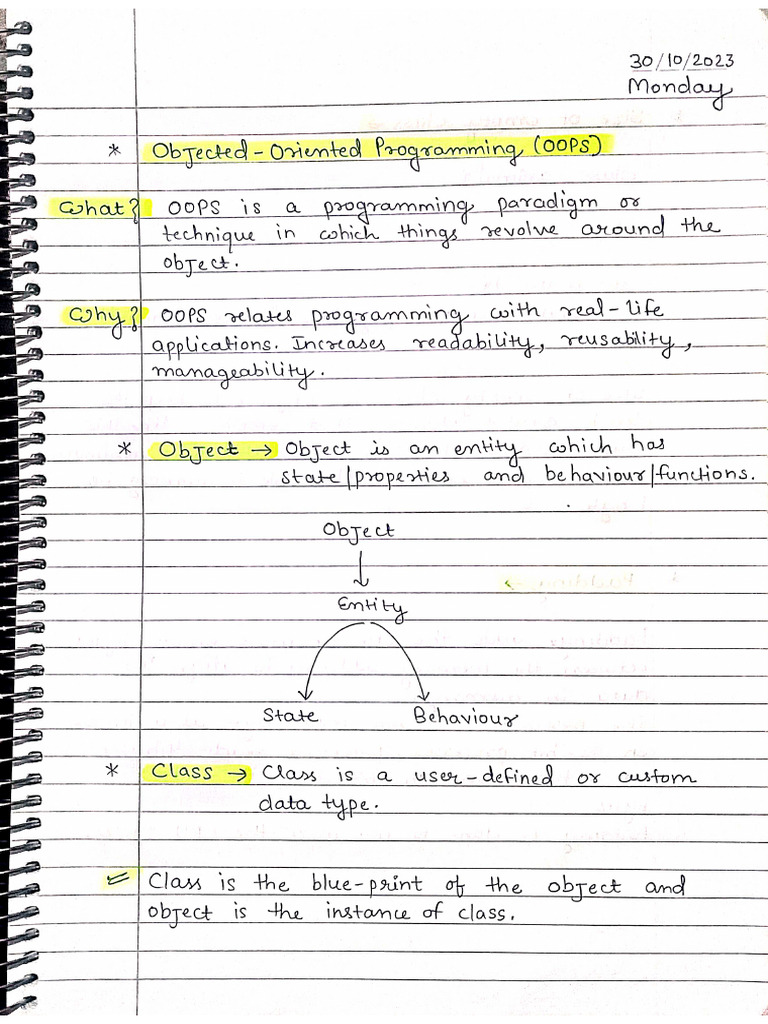 30/10/2023
Monday
* Objected-Oriented Programming (OOPS)
What? OOPS is a programming paradigm or
technique in which things revolve around the
object.
Why? OOPS relates programming with real-life
applications. Increases readability, reusability,
manageability.
* Object → Object is an entity which has
state/properties and behaviour/functions.
Object
Entity
State Behaviour
* Class → Class is a user-defined or custom
data type.
Class is the blue-print of the object and
object is the instance of class.